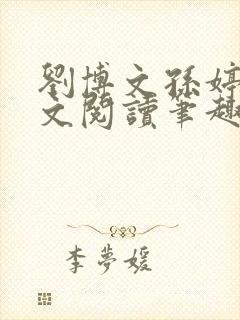 劉博文孫婷
文閱讀筆趣
李夢媛